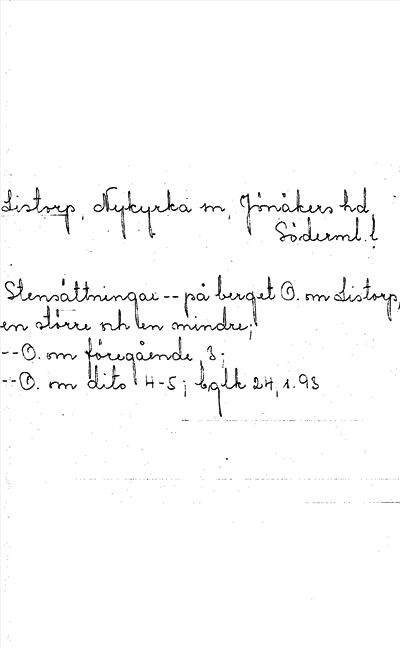 Listorp, Nykyrka sn, Jönåkers hd,
Söderml. l.
Stensättningar -- på berget O. om Listorp,
en större och en mindre;
-- O. om föregående, 3;
-- O. om dito 4-5; bglk 24, 1.93